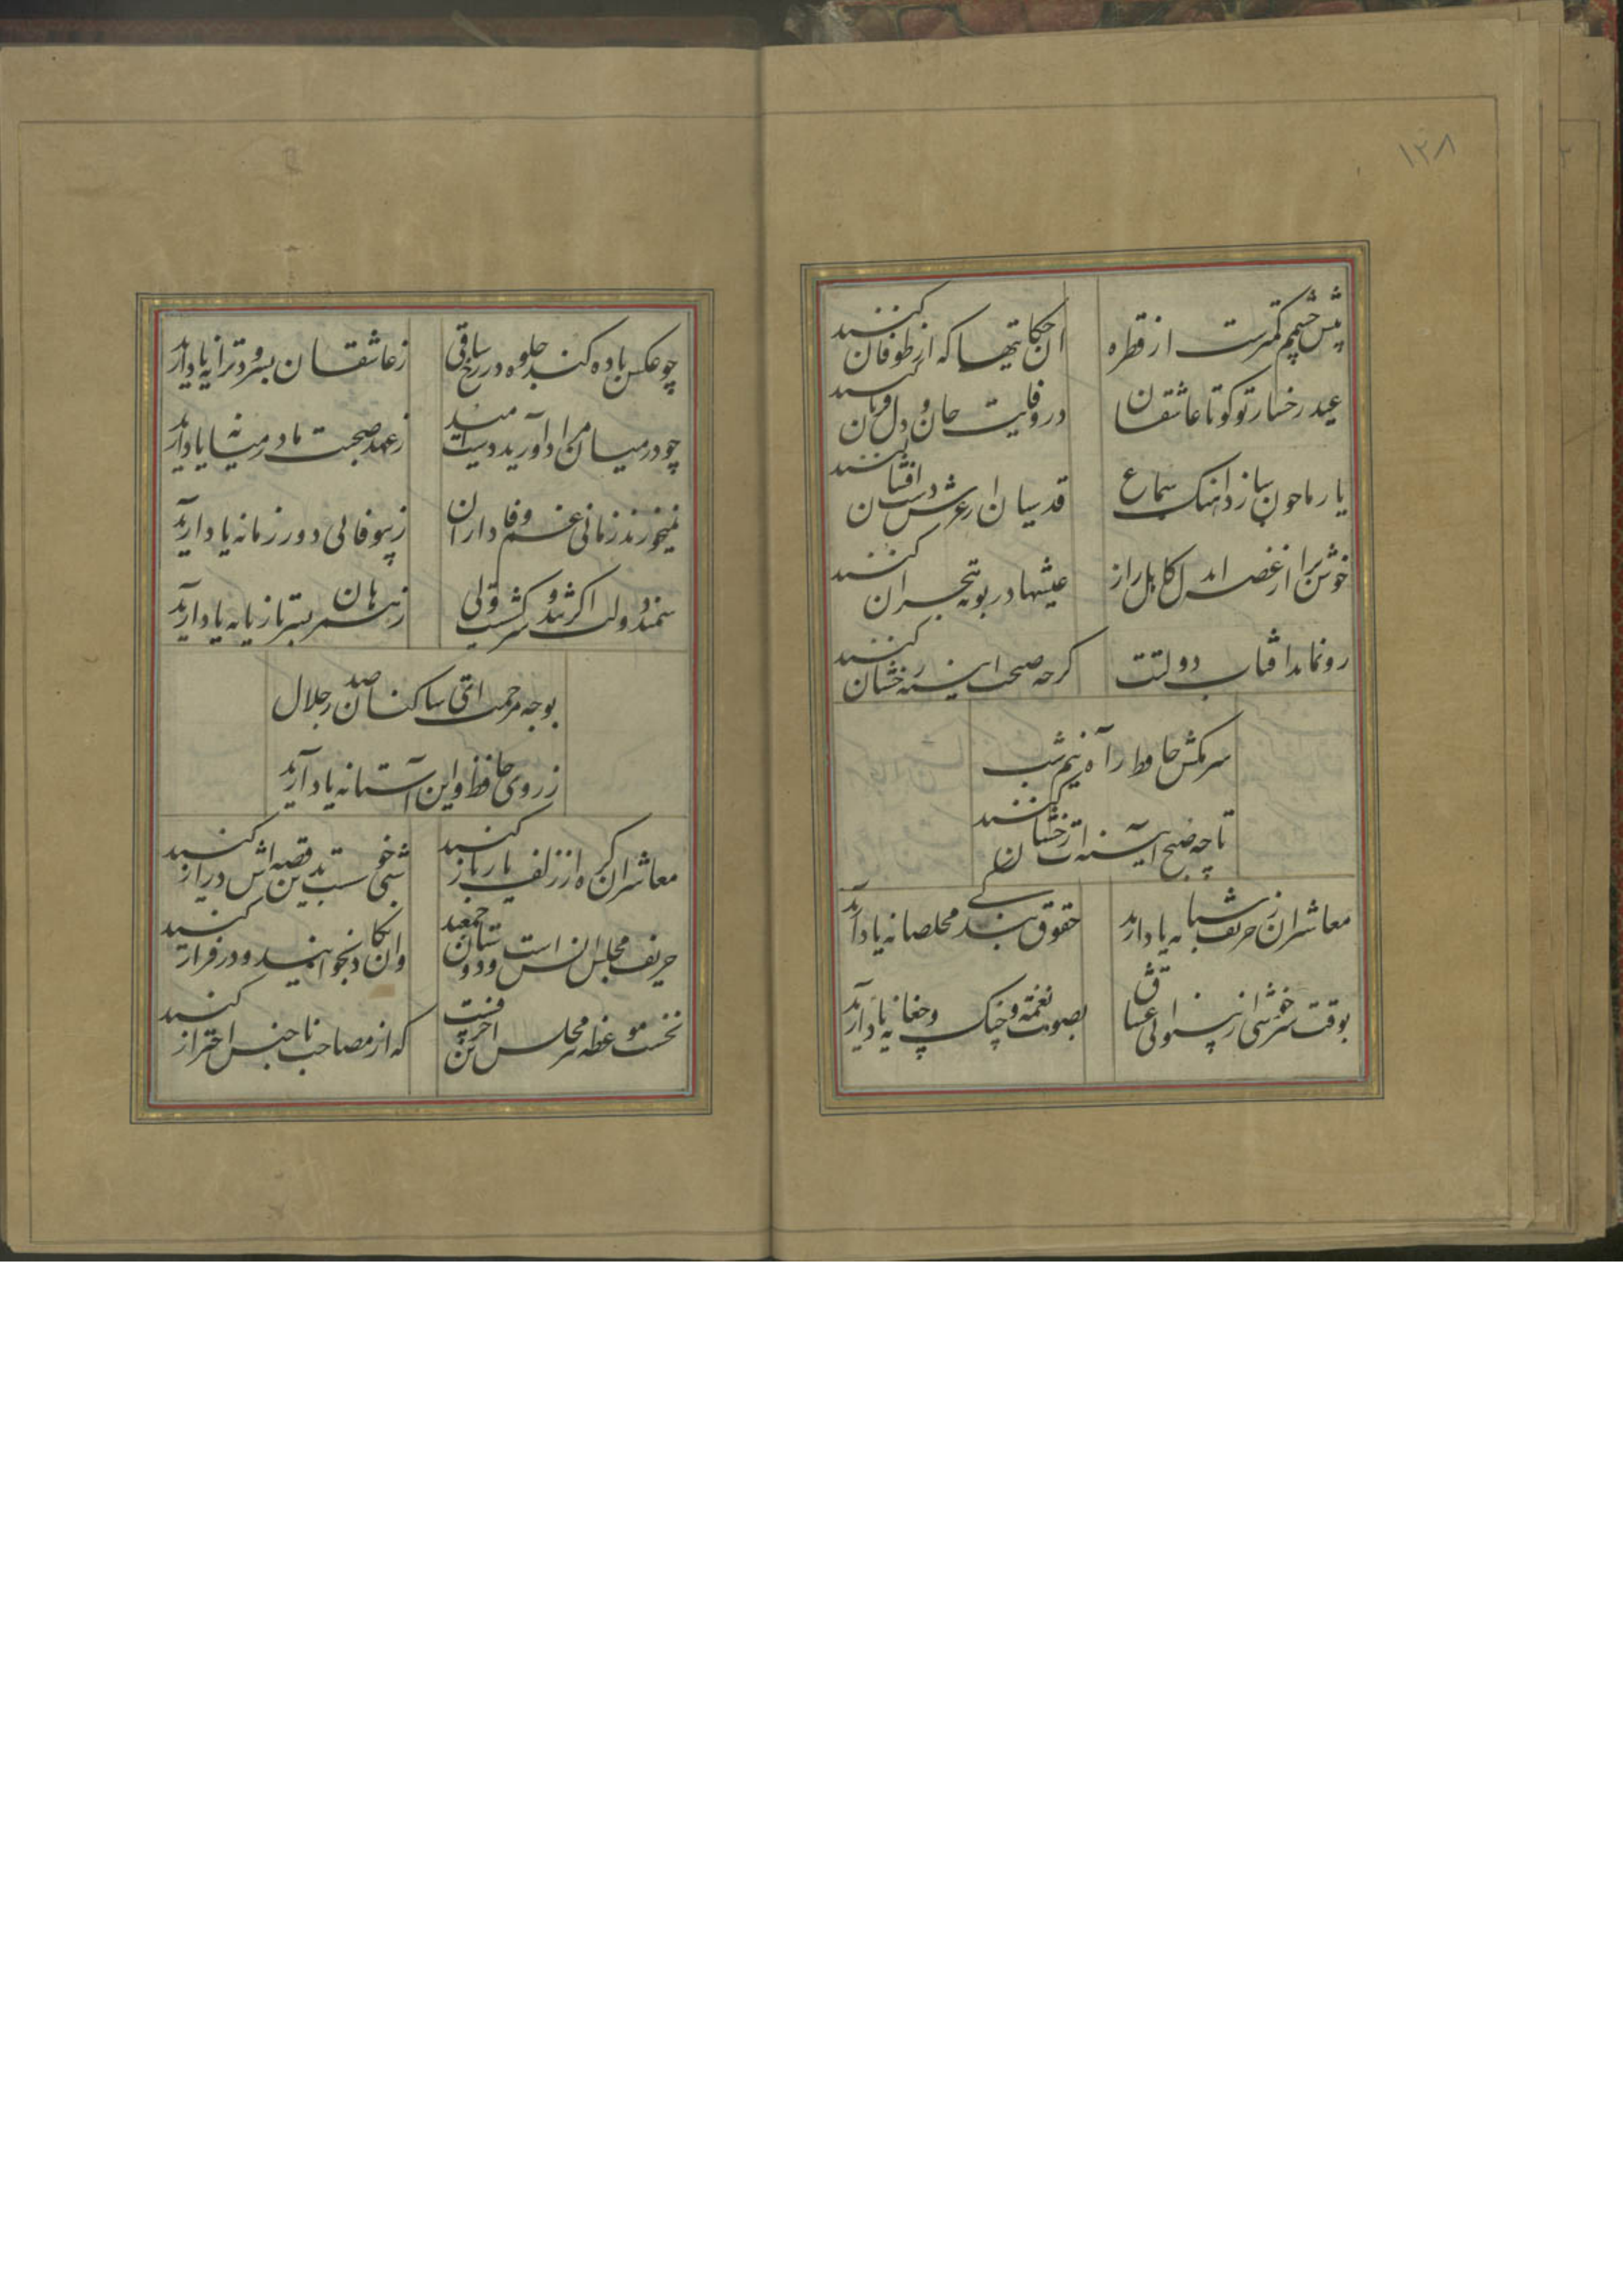 ۱۲۸
پیش چشم کمترست از قطره
ان حکایتها که از طوفان کنند
عید رخسار تو کو تا عاشقان
در وفایت جان و دل قربان کنند
یار ما چون سازد اهنک سماع
قدسیان از عرش دست افشان کنند
خوش برا از غصه ای دل کاهل راز
عیشها در بوته هجران کنند
رو نماید افتاب دولتت
کرچه صبحت اینه رخشان کنند
سر مکش حافظ ز آه نیم شب
تا چو صبح آینه ات رخشان کنند
معاشران ز حریف شبانه یاد ارید
حقوق بندکی مخلصانه یاد آرید
بوقت سرخوشی از بینوائی عشاق
بصوت و نغمه چنک و چغانه یاد آرید
چو عکس باده کند جلوه در رخ ساقی
ز عاشقان بسرود و ترانه یاد آرید
چو در میان مراد آورید دست امید
ز عهد صحبت ما در میانه یاد آرید
نمیخورند زمانی غم وفاداران
ز بیوفائی دور زمانه یاد آرید
سمند دولت اکر تند و سرکشست ولی
ز همرهان بسر تازیانه یاد آرید
بوجه مرحمت ای ساکنان صدر جلال
ز روی حافظ و این آستانه یاد آرید
معاشران کره از زلف یار باز کنید
شبی خوشست بدین قصه اش دراز کنید
حریف مجلس انس است و دوستان جمعند
وان یکاد بخوانید و در فراز کنید
نخست موعظه پیر مجلس این حرفست
که از مصاحب ناجنس احتراز کنید